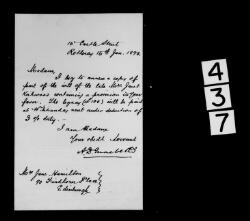 15 Castle Street
Rothesay 15th Jan. 1892
Madam,
I beg to annex a copy of
part of the will of the late Mrs Janet
Kirkwood containing a provision in your
favor. The legacy (£100) will be paid
at Whitsunday next under deduction of
3 % duty.—
I am Madam
Your obedt Servant
Mrs Jane Hamilton
Edinburgh
437